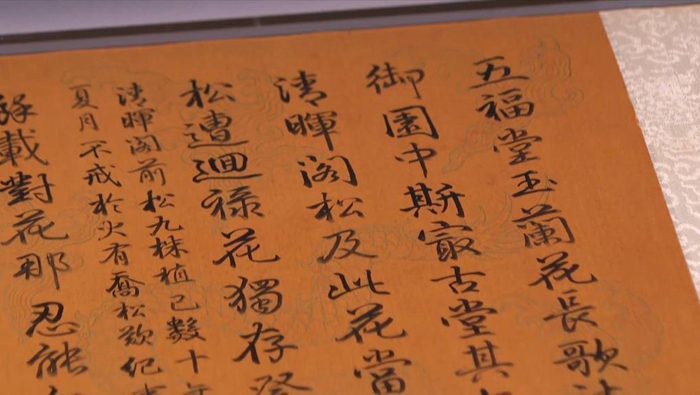 五福堂玉蘭花長歌
御園中斯最古堂其
清暉閣松及此花當
松遭迴祿花獨存
清暉閣前松九株植已數十
夏月不戒於火有喬松歎紀
載對花那忍能